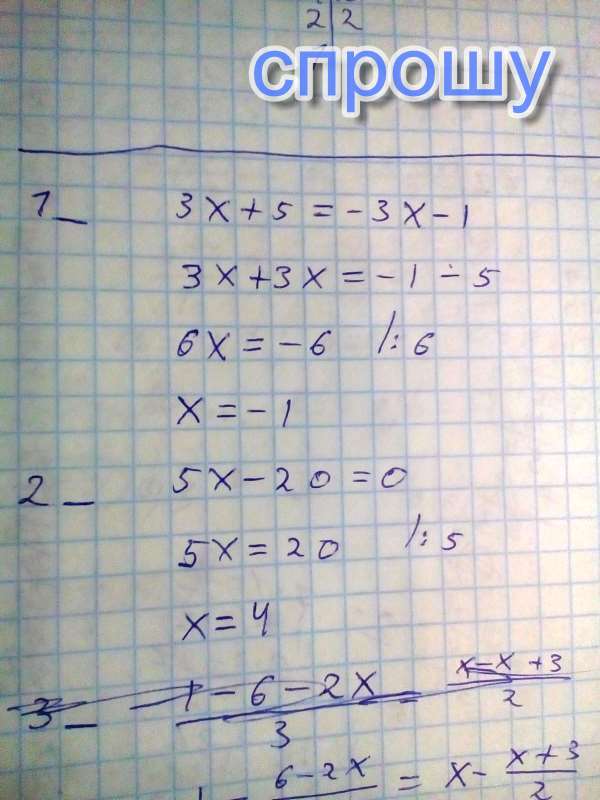 2 | 2
спрошу
1_ 3x + 5 = -3x - 1
3x + 3x = -1 - 5
6x = -6 /: 6
x = -1
2_ 5x - 20 = 0
5x = 20 /: 5
x = 4
3_ 1 - 6 - 2x / 3 = x - x + 3 / 2
1 - 6 - 2x = x - x + 3 / 2